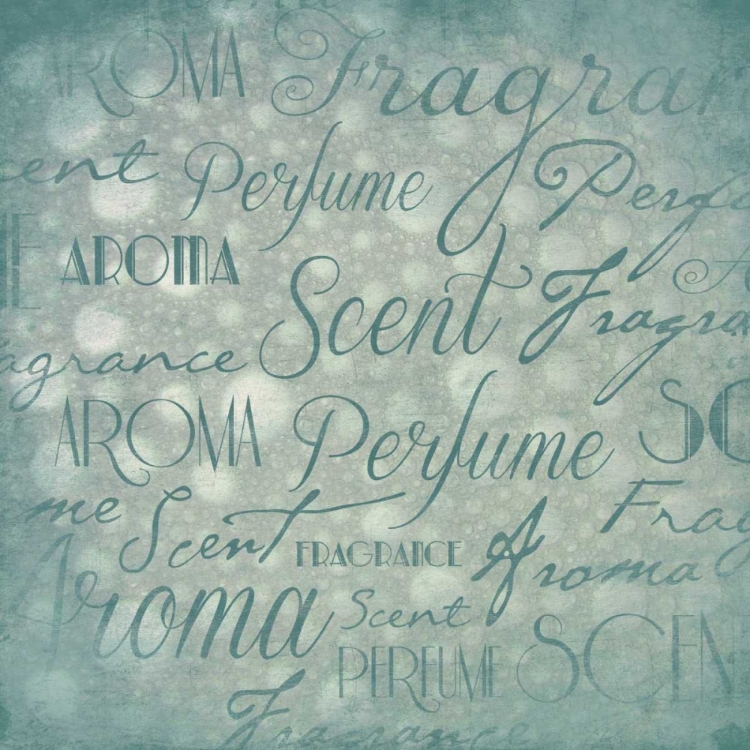 AROMA Fragran
ent Perfume Perfu
AROMA
Scent Fragra
agrance
AROMA Perfume SC
me Scent Frag
FRAGRANCE Aroma
Aroma Scent
PERFUME SCEN
Fragrance